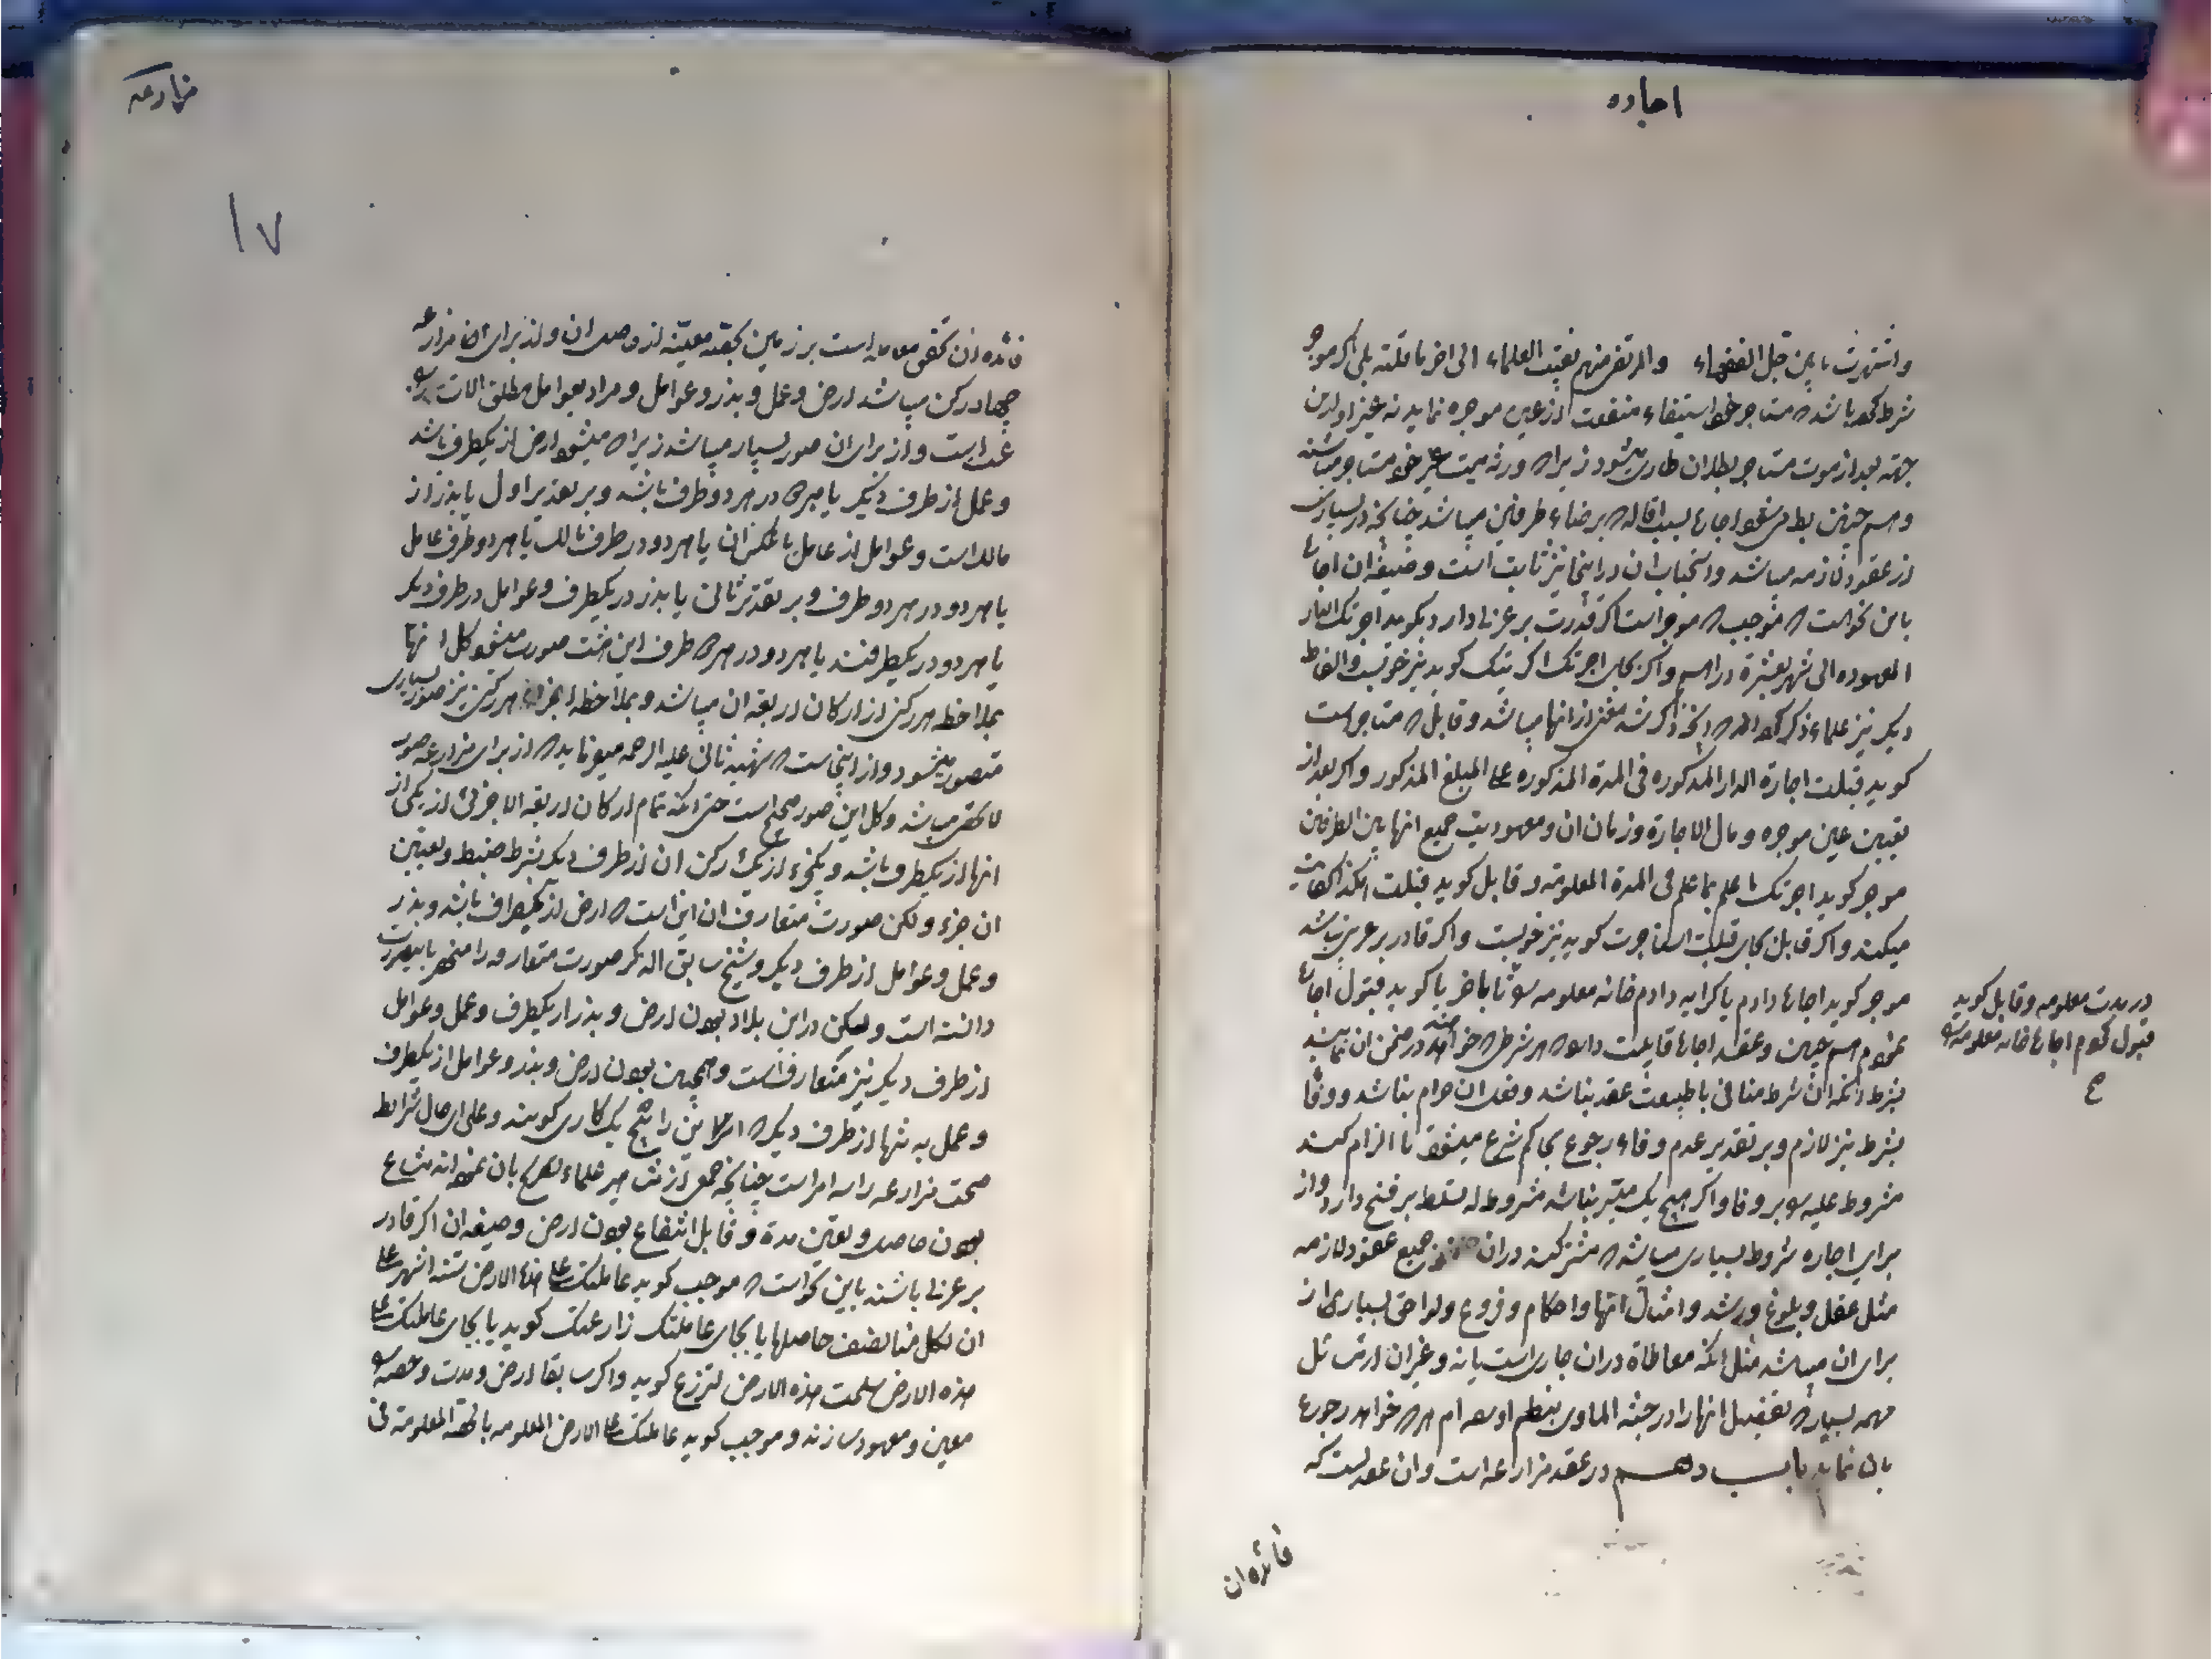 اجاره
واشتهرت بابین قبل الفقهاء والمرتضی منهم نقیب العلماء الی اخر ما قلته بلی اگر موجر
شرط کرده باشد که مستاجر خود استیفاء منفعت از عین موجره نماید نه غیر او در این
جهة بعد از موت مستاجر بطلان طاری میشود زیرا که ورثه میت غیر خود مستاجر میباشند
و همچنین بط میشود اجاره بسبب اقاله که برضاء طرفین میباشد چنانچه در بسیاری
از عقود لازمه میباشد و استحباب ان در اینجا نیز ثابت است و صیغه ان اجاره
باین نحو است که موجب که موجر است اگر قدرت بر عربی دارد بگوید اجرتک الدار
المعهوده الی شهر بعشرة دراهم و اگر بجای اجرتک اکریتک گوید نیز خوبست و الفاظ
دیگر نیز علماء ذکر کرده اند که انچه ذکر شد مغنی از انها میباشد و قابل که مستاجر است
گوید قبلت اجارة الدار المذکوره فی المدة المذکوره علی المبلغ المذکور و اگر بعد از
تعیین عین موجره و مال الاجارة و زمان ان و معهودیت جمیع انها بین الطرفین
موجر گوید اجرتک ما علم بما علم فی المدة المعلومة و قابل گوید قبلت هکذا کفایت
میکند و اگر قابل بجای قبلت استاجرت گوید نیز خوبست و اگر قادر بر عربی نباشد
موجر گوید اجاره دادم یا کرایه دادم خانه معلومه را تا باخر یا گوید قبول اجاره
نمودم همچنین و عقد اجاره قابلیت دارد که هر شرطی که خواهند در ضمن ان نمایند
بشرط انکه ان شرط منافی با طبیعت عقد نباشد و فعل ان حرام نباشد و وفا
بشرط نیز لازم و بر تقدیر عدم وفاء رجوع بحاکم شرع میشود تا الزام کند
مشروط علیه را بر وفا و اگر هیچ یک میسر نباشد مشروط له تسلط بر فسخ دارد و از
برای اجاره شروط بسیاری میباشد که مشترکند در ان جمیع عقود لازمه
مثل عقل و بلوغ و رشد و امثال انها و احکام و فروع و لواحق بسیاری از
برای ان میباشد مثل انکه معاطاة در ان جاری است یا نه و غیر ان از مسائل
مهمه بسیار که تفصیل انها را در جنة الماوی بنظم اورده ام هر که خواهد رجوع
بان نماید باب دهم در عقد مزارعه است و ان عقدیست که
در مدت معلومه و قابل گوید
قبول کردم اجاره خانه معلومه را
ح
فائده ان
مزارعه
١٧
فائده ان تحقق معامله است بر زمین بحصه معینه از حاصل ان و از برای مزارعه
چهار رکن میباشد ارض و عمل و بذر و عوامل و مراد بعوامل مطلق الات
است و از برای ان صور بسیار میباشد زیرا که میشود ارض از یکطرف باشد
و عمل از طرف دیگر یا هر یک در هر دو طرف باشد و بر تقدیر اول یا بذر از
مالک است و عوامل از عامل یا عکس ان یا هر دو در طرف مالک یا هر دو طرف عامل
یا هر دو در هر دو طرف و بر تقدیر ثانی یا بذر در یکطرف و عوامل در طرف دیگر
یا هر دو در یکطرفند یا هر دو در هر دو طرف این هشت صورت میشود کل انها
بملاحظه هر رکنی از ارکان اربعه ان میباشد و بملاحظه اجزاء هر رکنی نیز صور بسیاری
متصور میشود و از اینجاست که شهید ثانی علیه الرحمه میفرماید که از برای مزارعه صور
لا تحصی میباشد و کل این صور صحیح است حتی انکه تمام ارکان اربعه الا جزئی از یکی از
انها از یکطرف باشد و یکجزء از یک رکن ان از طرف دیگر بشرط ضبط و تعیین
ان جزء و لکن صورت متعارف ان این است که ارض از یکطرف باشد و بذر
و عمل و عوامل از طرف دیگر و شیخ سابق الذکر صورت متعارفه را منحصر باینصورت
دانسته است و لیکن در این بلاد بودن ارض و بذر از یکطرف و عمل و عوامل
از طرف دیگر نیز متعارف است و همچنین بودن ارض و بذر و عوامل از یکطرف
و عمل به تنها از طرف دیگر که را پنج یک کاری گویند و علی ای حال شرایط
صحت مزارعه را سه امر است چنانچه جمعی از مشاهیر علماء تصریح بان نموده اند مشاع
بودن حاصل و تعیین مدة و قابل انتفاع بودن ارض و صیغه ان اگر قادر
بر عربی باشند باین نحو است که موجب گوید عاملتک علی هذه الارض ستة اشهر علی
ان لکل منا نصف حاصلها یا بجای عاملتک زارعتک گوید یا بجای عاملتک علی
هذه الارض سلمت هذه الارض لتزرع گوید و اگر سابقا ارض و مدت و حصه را
معین و معهود سازند و موجب گوید عاملتک علی الارض المعلومه بالحصة المعلومة فی